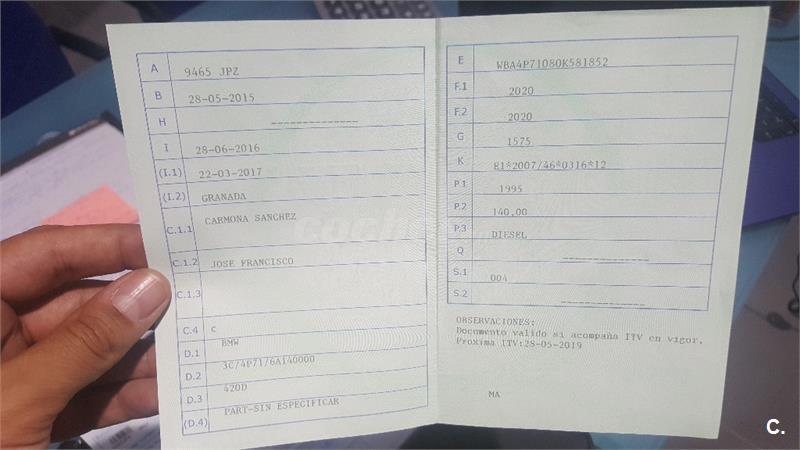 A 9465 JPZ
B 28-05-2015
H --------------
I 28-06-2016
(I.1) 22-03-2017
(I.2) GRANADA
C.1.1 CARMONA SANCHEZ
C.1.2 JOSE FRANCISCO
C.1.3
C.4 c
D.1 BMW
D.2 3C/4P71/6A140000
D.3 420D
(D.4) PART-SIN ESPECIFICAR
E WBA4P71080K581852
F.1 2020
F.2 2020
G 1575
K E1*2007/46*0316*12
P.1 1995
P.2 140,00
P.3 DIESEL
Q --------------
S.1 004
S.2 --------------
OBSERVACIONES:
Documento valido si acompaña ITV en vigor.
Proxima ITV:28-05-2019
MA
C.